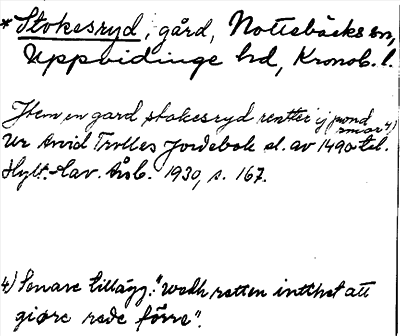 *Stokesryd, gård, Nottebäcks sn,
Uppvidinge hd, Kronob. l.
Jtem en gard stokesryd rentter ij pund
smør 4)
Ur Arvid Trolles Jordebok sl. av 1490 tal.
Hylt.-Cav. Årsb. 1930, s. 167.
4) Senare tillägg: "wedh retten inthet att
giøre rede førre".